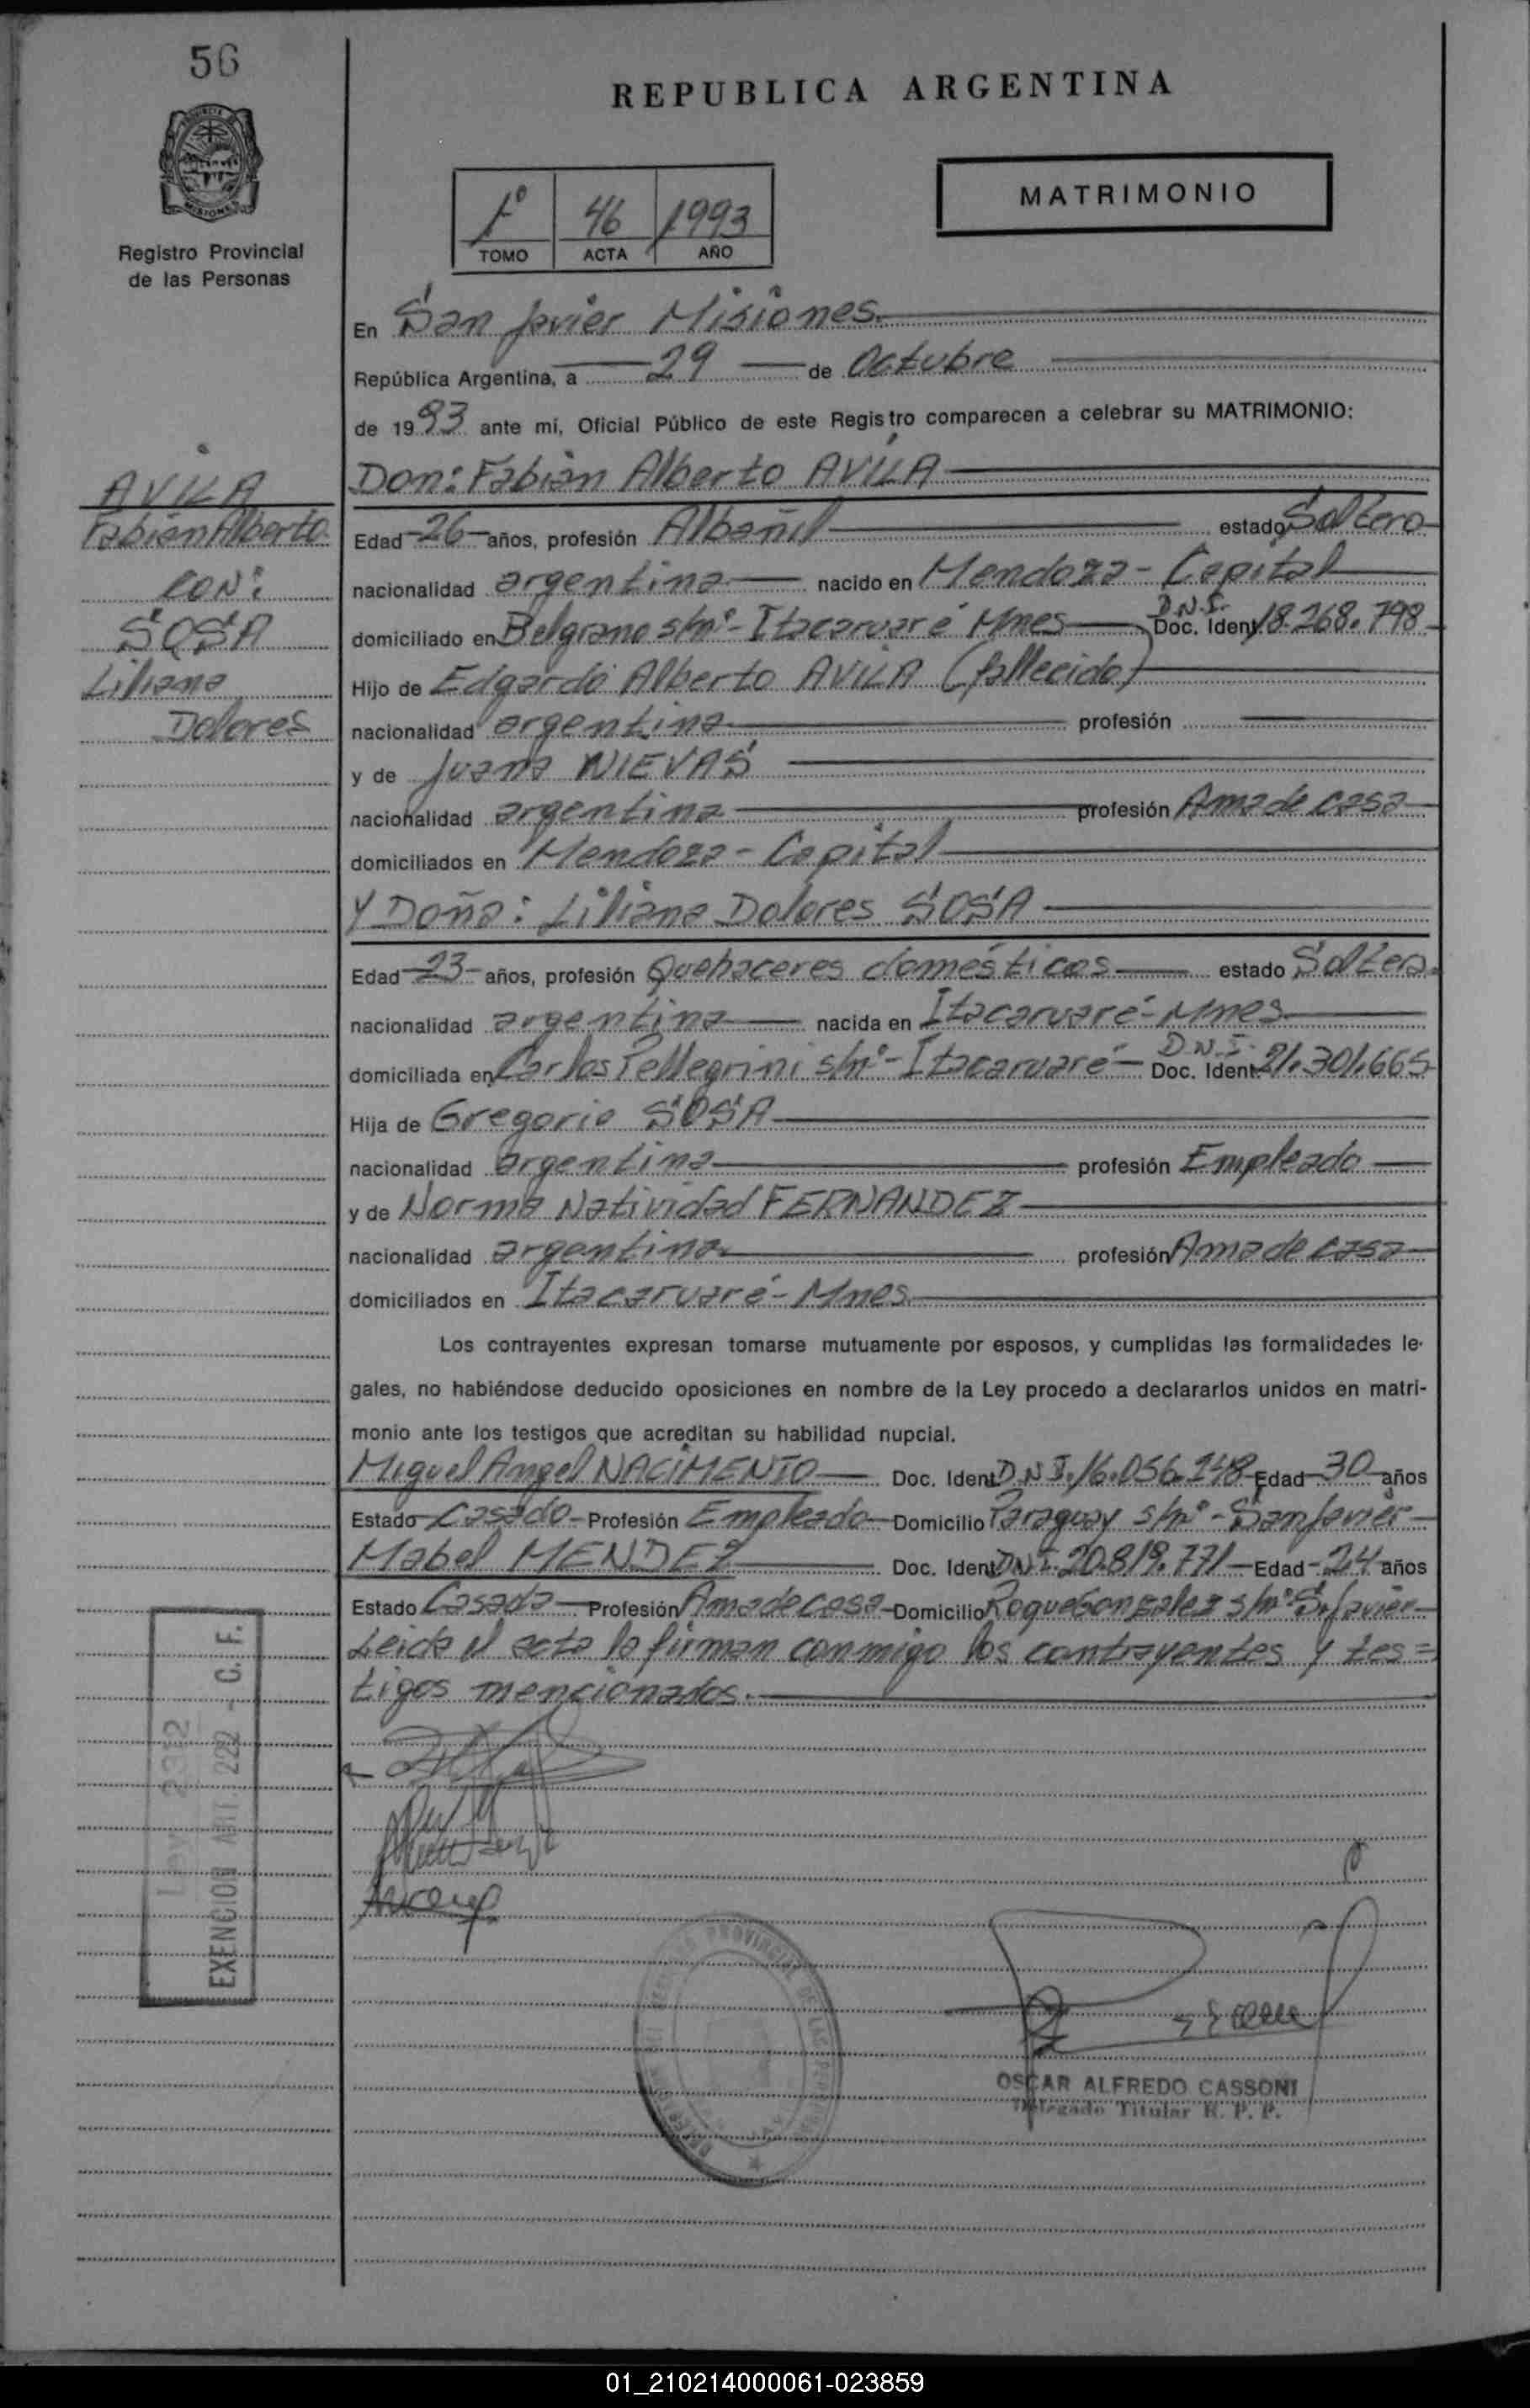 56
REPUBLICA ARGENTINA
MATRIMONIO
1º 46 1993
TOMO ACTA AÑO
MISIONES
Registro Provincial
de las Personas
En San Javier Misiones.
República Argentina, a 29 de Octubre
de 1993 ante mi, Oficial Público de este Registro comparecen a celebrar su MATRIMONIO:
Don: Fabián Alberto AVILA
AVILA
Fabián Alberto
CON:
SOSA
Liliana
Dolores
Edad 26 años, profesión Albañil estado Soltero
nacionalidad argentina nacido en Mendoza - Capital
domiciliado en Belgrano s/nº - Itacaruaré Mnes D.N.I. Doc. Ident. 18.268.798
Hijo de Edgardo Alberto AVILA (fallecido)
nacionalidad argentina profesión
y de Juana NIEVAS
nacionalidad argentina profesión Ama de casa
domiciliados en Mendoza - Capital
Y Doña: Liliana Dolores SOSA
Edad 23 años, profesión Quehaceres domésticos estado Soltera
nacionalidad argentina nacida en Itacaruaré - Mnes
domiciliada en Carlos Pellegrini s/nº - Itacaruaré - D.N.I. Doc. Ident. 21.301.665
Hija de Gregorio SOSA
nacionalidad argentina profesión Empleado
y de Norma Natividad FERNANDEZ
nacionalidad argentina profesión Ama de casa
domiciliados en Itacaruaré - Mnes
Los contrayentes expresan tomarse mutuamente por esposos, y cumplidas las formalidades le-
gales, no habiéndose deducido oposiciones en nombre de la Ley procedo a declararlos unidos en matri-
monio ante los testigos que acreditan su habilidad nupcial.
Miguel Angel NACIMENTO Doc. Ident. D.N.I. 16.056.248 Edad 30 años
Estado Casado - Profesión Empleado Domicilio Paraguay s/nº - San Javier
Mabel MENDEZ Doc. Ident. DNI. 20.819.771 Edad 24 años
Estado Casada Profesión Ama de casa Domicilio Roque Gonzalez s/nº S. Javier
Leida el acta la firman conmigo los contrayentes y tes=
tigos mencionados.
Ley 2312
EXENCION ART. 222 - C. F.
PROVINCIAL DE LAS PERSONAS
OSCAR ALFREDO CASSONI
Delegado Titular R. P. P.
01_210214000061-023859